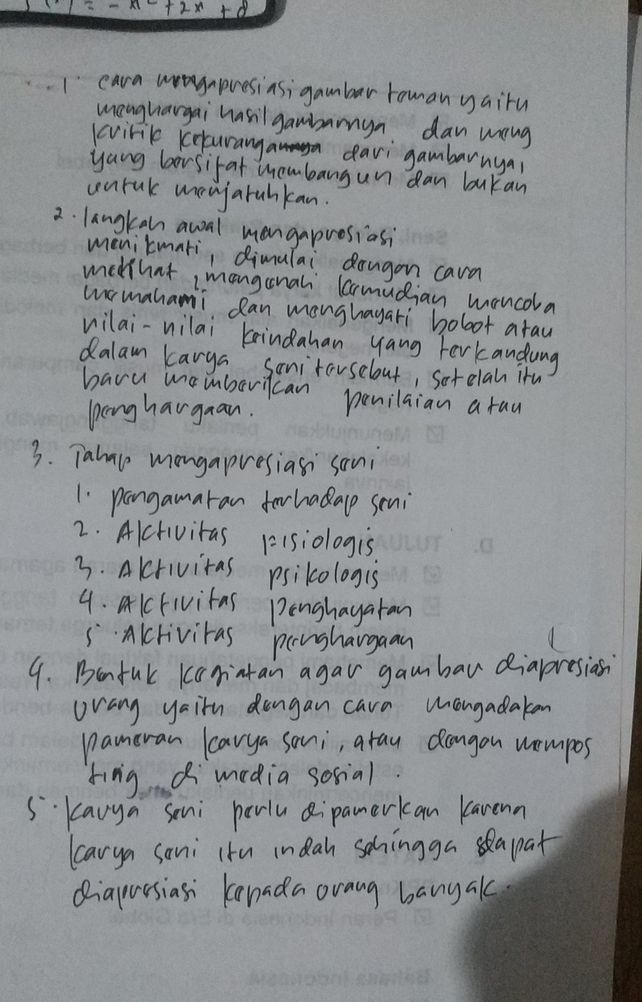 = -x² + 2x + 8
1. cara mengapresiasi gambar teman yaitu
menghargai hasil gambarnya dan meng
kritik kekurangan dari gambarnya,
yang bersifat membangun dan bukan
untuk menjatuhkan.
2. langkah awal mengapresiasi
menikmati dimulai dengan cara
melihat, mengenali kemudian mencoba
memahami dan menghayati bobot atau
nilai-nilai keindahan yang terkandung
dalam karya seni tersebut, setelah itu
baru memberikan penilaian atau
penghargaan.
3. Tahap mengapresiasi seni
1. pengamatan terhadap seni
2. Aktivitas fisiologis
3. Aktivitas psikologis
4. Aktivitas penghayatan
5. Aktivitas penghargaan
4. Bentuk kegiatan agar gambar diapresiasi
orang yaitu dengan cara mengadakan
pameran karya seni, atau dengan mempos
ting di media sosial.
5. Karya seni perlu dipamerkan karena
karya seni itu indah sehingga dapat
diapresiasi kepada orang banyak.